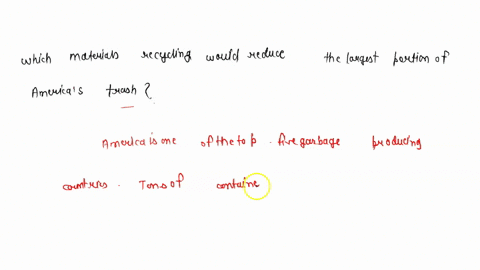 which materials recycling would reduce the largest portion of
America's trash?
America is one of the top five garbage producing
countries. Tons of containe